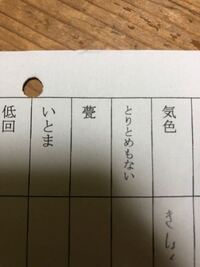 気色
きしょく
とりとめもない
甍
いとま
低回